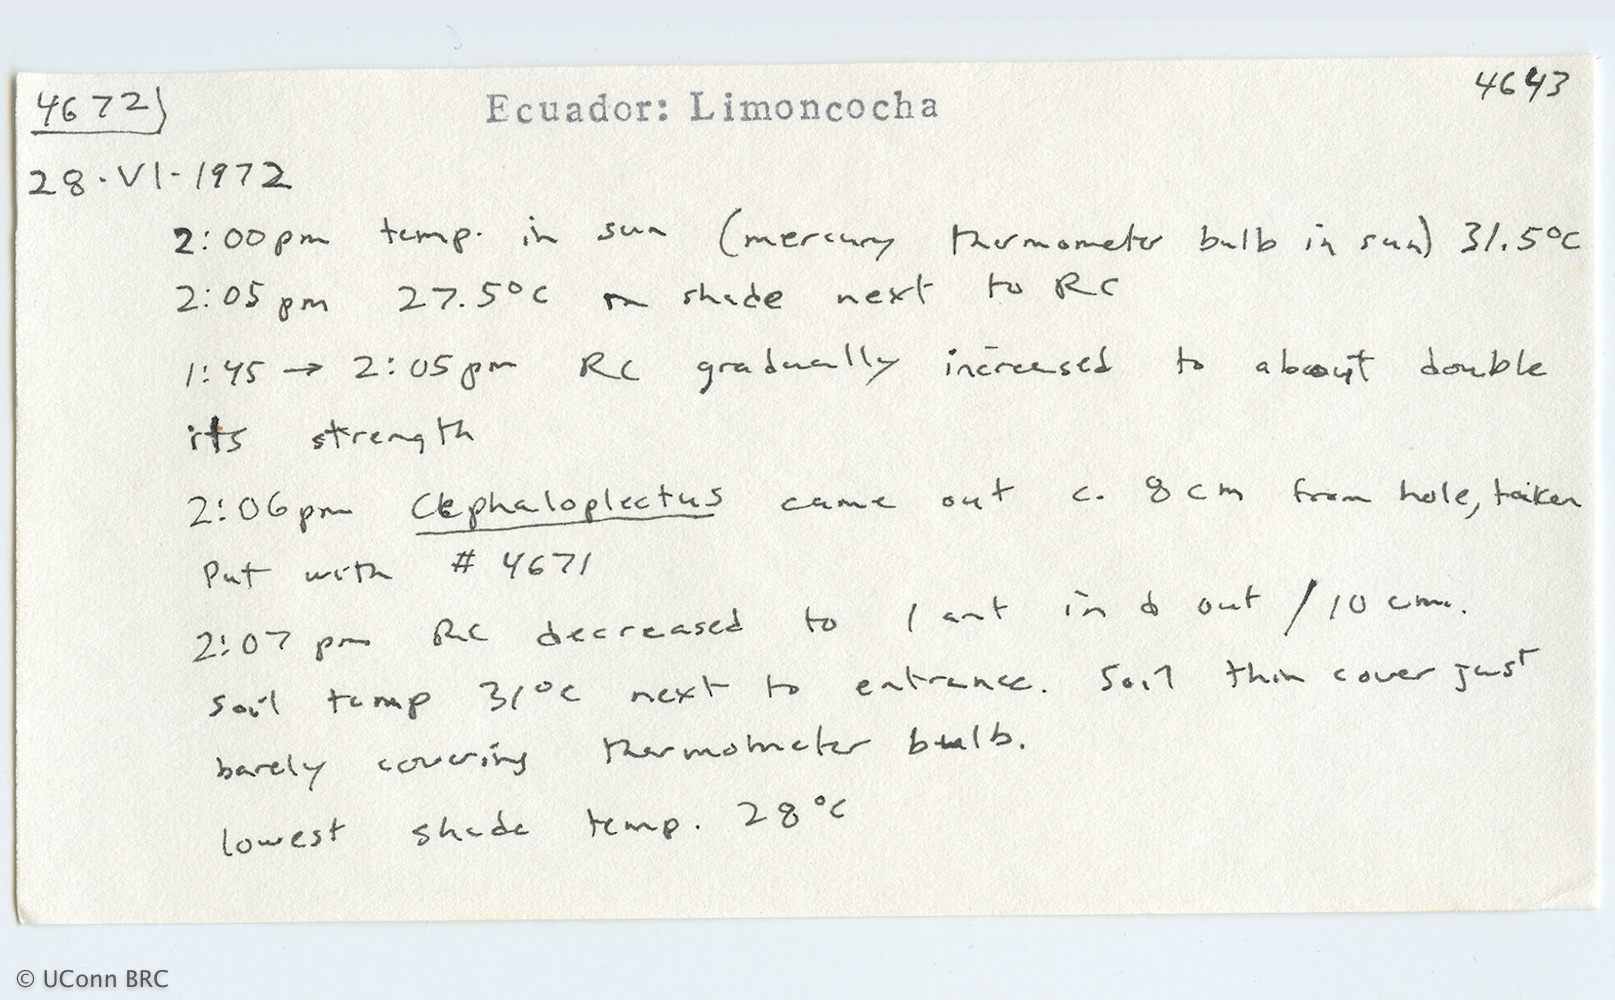 4672) Ecuador: Limoncocha 4643
28·VI-1972
2:00pm temp. in sun (mercury thermometer bulb in sun) 31.5°C
2:05pm 27.5°C in shade next to RC
1:45 → 2:05pm RC gradually increased to about double
its strength
2:06pm Cephaloplectus came out c. 8cm from hole, taken
Put with # 4671
2:07pm RC decreased to 1 ant in & out / 10 cm.
Soil temp 31°C next to entrance. Soil thin cover just
barely covering thermometer bulb.
lowest shade temp. 28°C
© UConn BRC